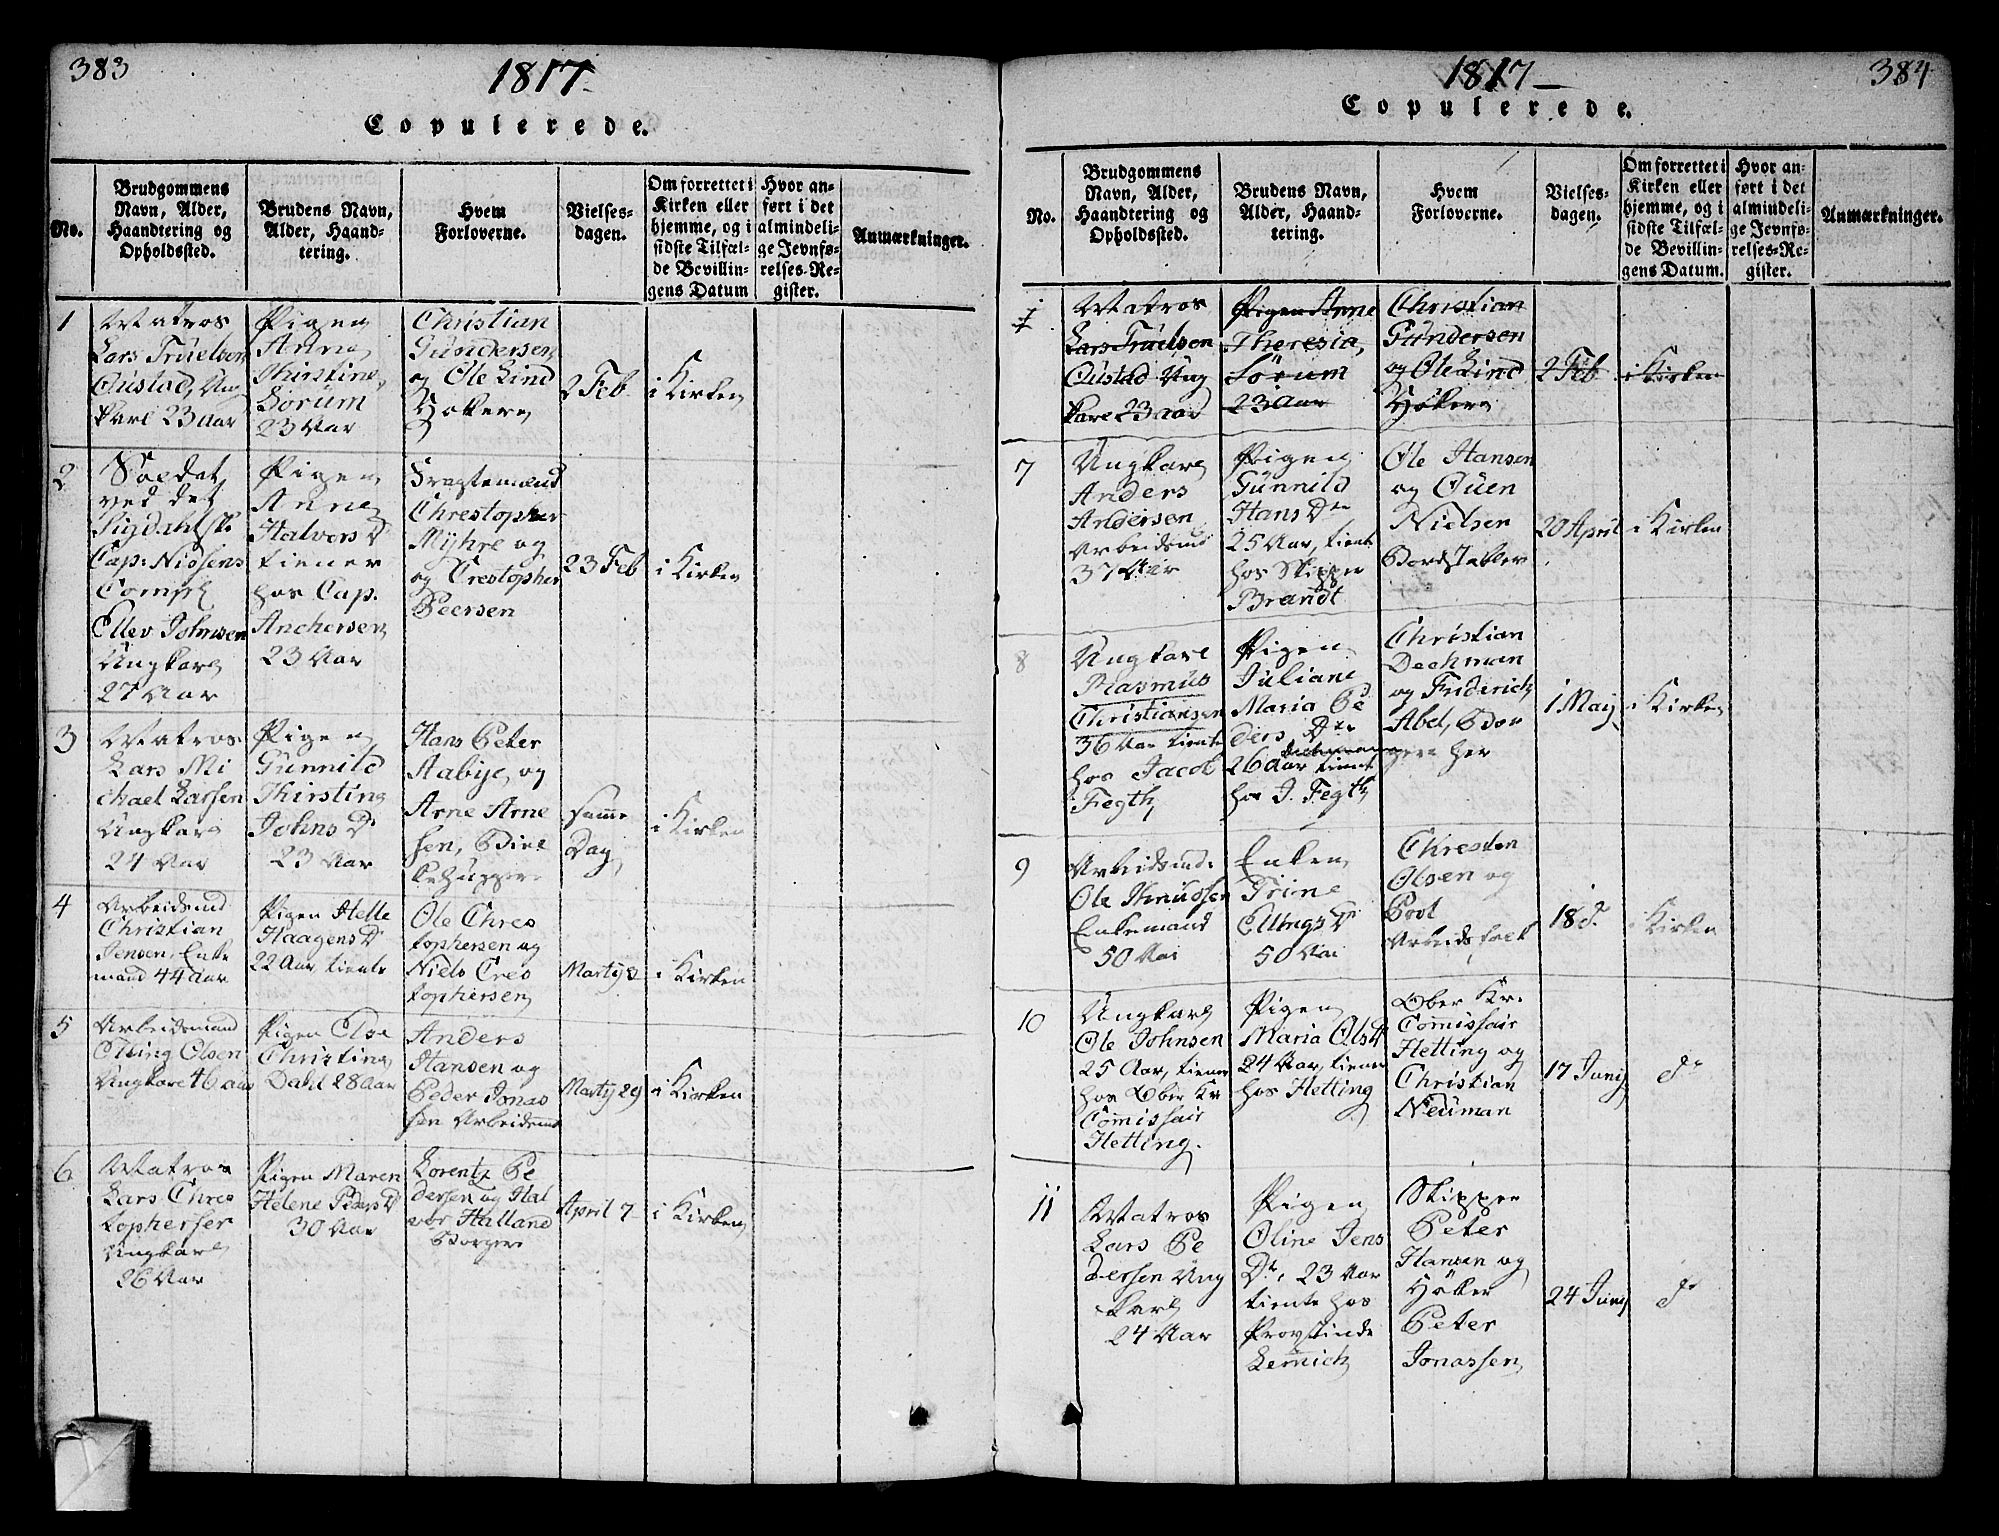 383
1817
Copulerede.
No.
Brudgommens
Navn, Alder,
Haandtering og
Opholdssted.
Brudens Navn,
Alder, Haand-
tering.
Hvem
Forloverne.
Vielses-
dagen.
Om forrettet i
Kirken eller
hjemme, og i
sidste Tilfæl-
de Bevillin-
gens Datum
Hvor an-
ført i det
almindeli-
ge Jevnfø-
relses-Re-
gister.
Anmærkninger.
1
Matros
Lars Truelsen
Custad, Ung
karl 23 Aar
Pigen
Anne
Thirstine
Sorum
23 Aar
Christian
Gundersen
og Ole Lind
Høkere
2 Feb
i Kirken
2
Soldat
ved det
Sigdahlsk.
Cap: Nissens
Comp.
Ellev Johnsen
Ungkarl
27 Aar
Pigen
Anne
Halvors D
tiener
hos Cap.
Anchersen
23 Aar
Chrestopher
Myhre og
og Crestopher
Peersen
23 Feb
i Kirken
3
Matros
Lars Mi
chael Larsen
Ungkarl
24 Aar
Pigen
Gunnild
Thirstine
Johns D
23 Aar
Hans Peter
Aabye, og
Arne Arne
sen,
samme
Dag
i Kirken
4
Arbeidsmd
Christian
Jensen, Enke
mand 44 Aar
Pigen Helle
Haagens D
22 Aar, tiente
Ole Chres
tophersen og
Niels Cres
tophersen
Marty 3
i Kirken
5
Arbeidsmand
Elling Olsen
Ungkarl 46 aar
Pigen Else
Christine
Dahl 28 Aar
Anders
Hansen og
Peder Jonas
sen Arbeidsmd
Marty 29
i Kirken
6
Matros
Lars Chres
tophersen
Ungkarl
26 Aar
Pigen Maren
Helene Peders D
30 Aar
Lorentz Pe
dersen og Hal
vor Halland
Borgere
April 7
i Kirken
1817
384
Copulerede.
No.
Brudgommens
Navn, Alder,
Haandtering og
Opholdssted.
Brudens Navn,
Alder, Haand-
tering.
Hvem
Forloverne.
Vielses-
dagen.
Om forrettet i
Kirken eller
hjemme, og i
sidste Tilfæl-
de Bevillin-
gens Datum.
Hvor an-
ført i det
almindeli-
ge Jevnfø-
relses-Re-
gister.
Anmærkninger.
1
Matros
Lars Truelsen
Custad Ung
karl 23 aar
Pigen Anne
Theresia,
Sørum
23 Aar
Christian
Gundersen
og Ole Lind
Høkere
2 Feb
i Kirken
7
Ungkarl
Anders
Andersen
Arbeidsmd
37 Aar
Pigen
Gunnild
Hans Dtr
25 Aar, tiente
hos Skipper
Brandt
Ole Hansen
og Ouen
Nielsen
Bordstabler
20 April
i Kirken
8
Ungkarl
Rasmus
Christiansen
36 Aar tiente
hos Jacob
Fegth
Pigen
Juliane
Maria Pe
ders Dtr
26 Aar tiente
hos J. Fegth
Christian
Dechman
og Friderich
Abel, Bor
gere her
1 May
i Kirken
9
Arbeidsmd.
Ole Knudsen
Enkemand
50 Aar
Enken
Trine
Ellings D
50 Aar
Chresten
Olsen og
Povl
Arbeidsfolk
18 d.
i Kirken
10
Ungkarl
Ole Johnsen
25 Aar, tiener
hos Ober Kr
Comissair
Hetting.
Pigen
Maria Ols D
24 Aar, tiener
hos Hetting
Ober Kr.
Comissair
Hetting og
Christian
Neuman
17 Juny
do
11
Matros
Lars Pe
dersen Ung
karl
24 Aar
Pigen
Oline Jens
Dtr, 23 Aar
tiente hos
Provstinde
Lemmich
Skipper
Peter
Hansen og
Høker
Peter
Jonassen
24 Juny
do